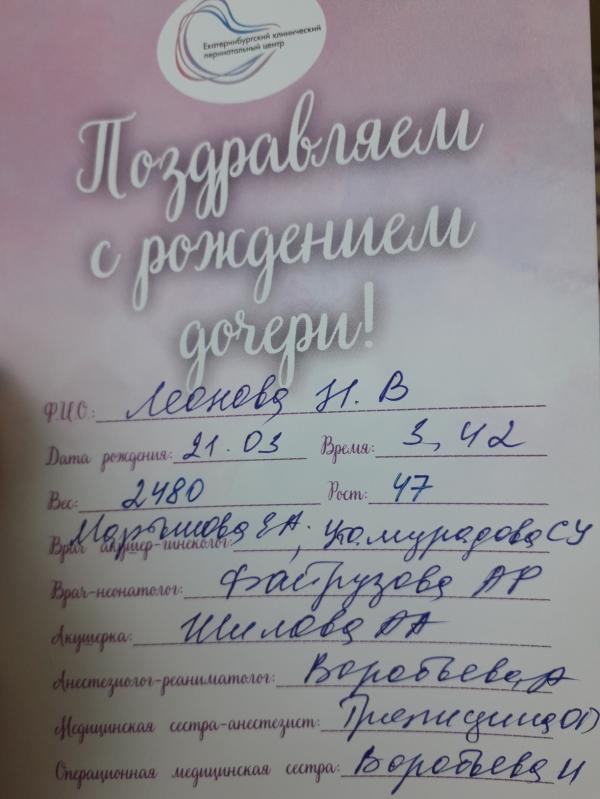 Екатеринбургский клинический
перинатальный центр
Поздравляем
с рождением
дочери!
Ф.И.О.: Леонова Н. В
Дата рождения: 21.03 Время: 3, 42
Вес: 2480 Рост: 47
Врач акушер-гинеколог: Марышова ЕА.,
Врач-неонатолог: Файрузова АР
Акушерка: Шилова АА
Анестезиолог-реаниматолог: Воробьева А
Медицинская сестра-анестезист:
Операционная медицинская сестра: Воробьева И